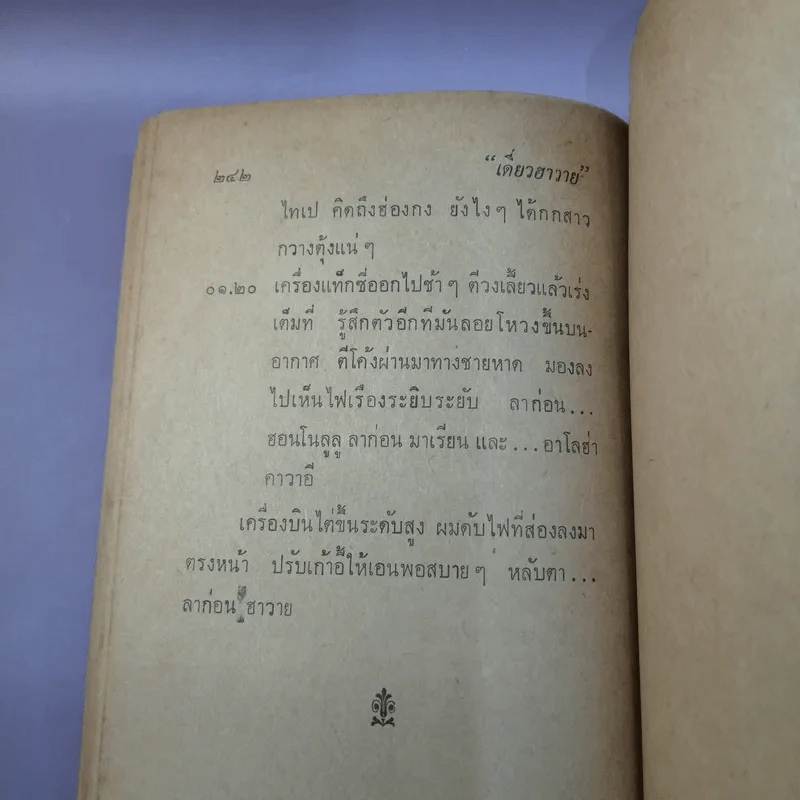 ๒๔๒ “เดี่ยวฮาวาย”
ไทเป คิดถึงฮ่องกง ยังไงๆ ได้กกสาว
กวางตุ้งแน่ๆ
๐๑.๒๐ เครื่องแท็กซี่ออกไปช้าๆ ตีวงเลี้ยวแล้วเร่ง
เต็มที่ รู้สึกตัวอีกทีมันลอยโหวงขึ้นบน-
อากาศ ตีโค้งผ่านมาทางชายหาด มองลง
ไปเห็นไฟเรืองระยิบระยับ ลาก่อน...
ฮอนโนลูลู ลาก่อน มาเรียน และ...อาโลฮ่า
คาวาอี
เครื่องบินไต่ขึ้นระดับสูง ผมดับไฟที่ส่องลงมา
ตรงหน้า ปรับเก้าอี้ให้เอนพอสบายๆ หลับตา...
ลาก่อน ฮาวาย